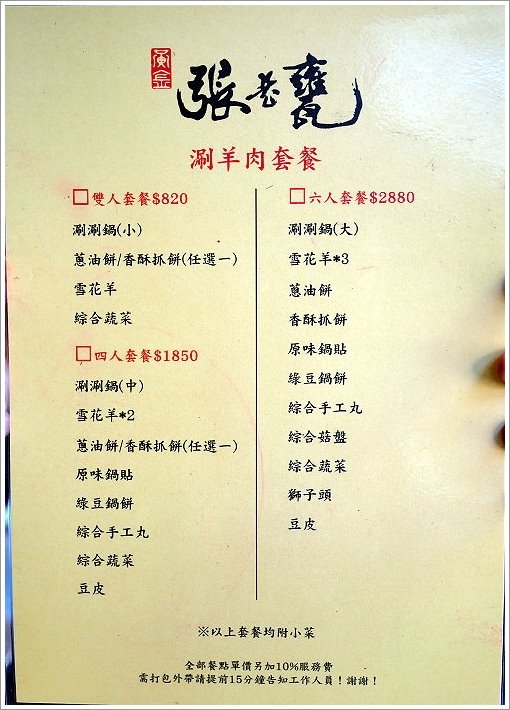 張老甕
涮羊肉套餐
□雙人套餐$820
涮涮鍋(小)
蔥油餅/香酥抓餅(任選一)
雪花羊
綜合蔬菜
□四人套餐$1850
涮涮鍋(中)
雪花羊*2
蔥油餅/香酥抓餅(任選一)
原味鍋貼
綠豆鍋餅
綜合手工丸
綜合蔬菜
豆皮
□六人套餐$2880
涮涮鍋(大)
雪花羊*3
蔥油餅
香酥抓餅
原味鍋貼
綠豆鍋餅
綜合手工丸
綜合菇盤
綜合蔬菜
獅子頭
豆皮
※以上套餐均附小菜
全部餐點單價另加10%服務費
需打包外帶請提前15分鐘告知工作人員！謝謝！